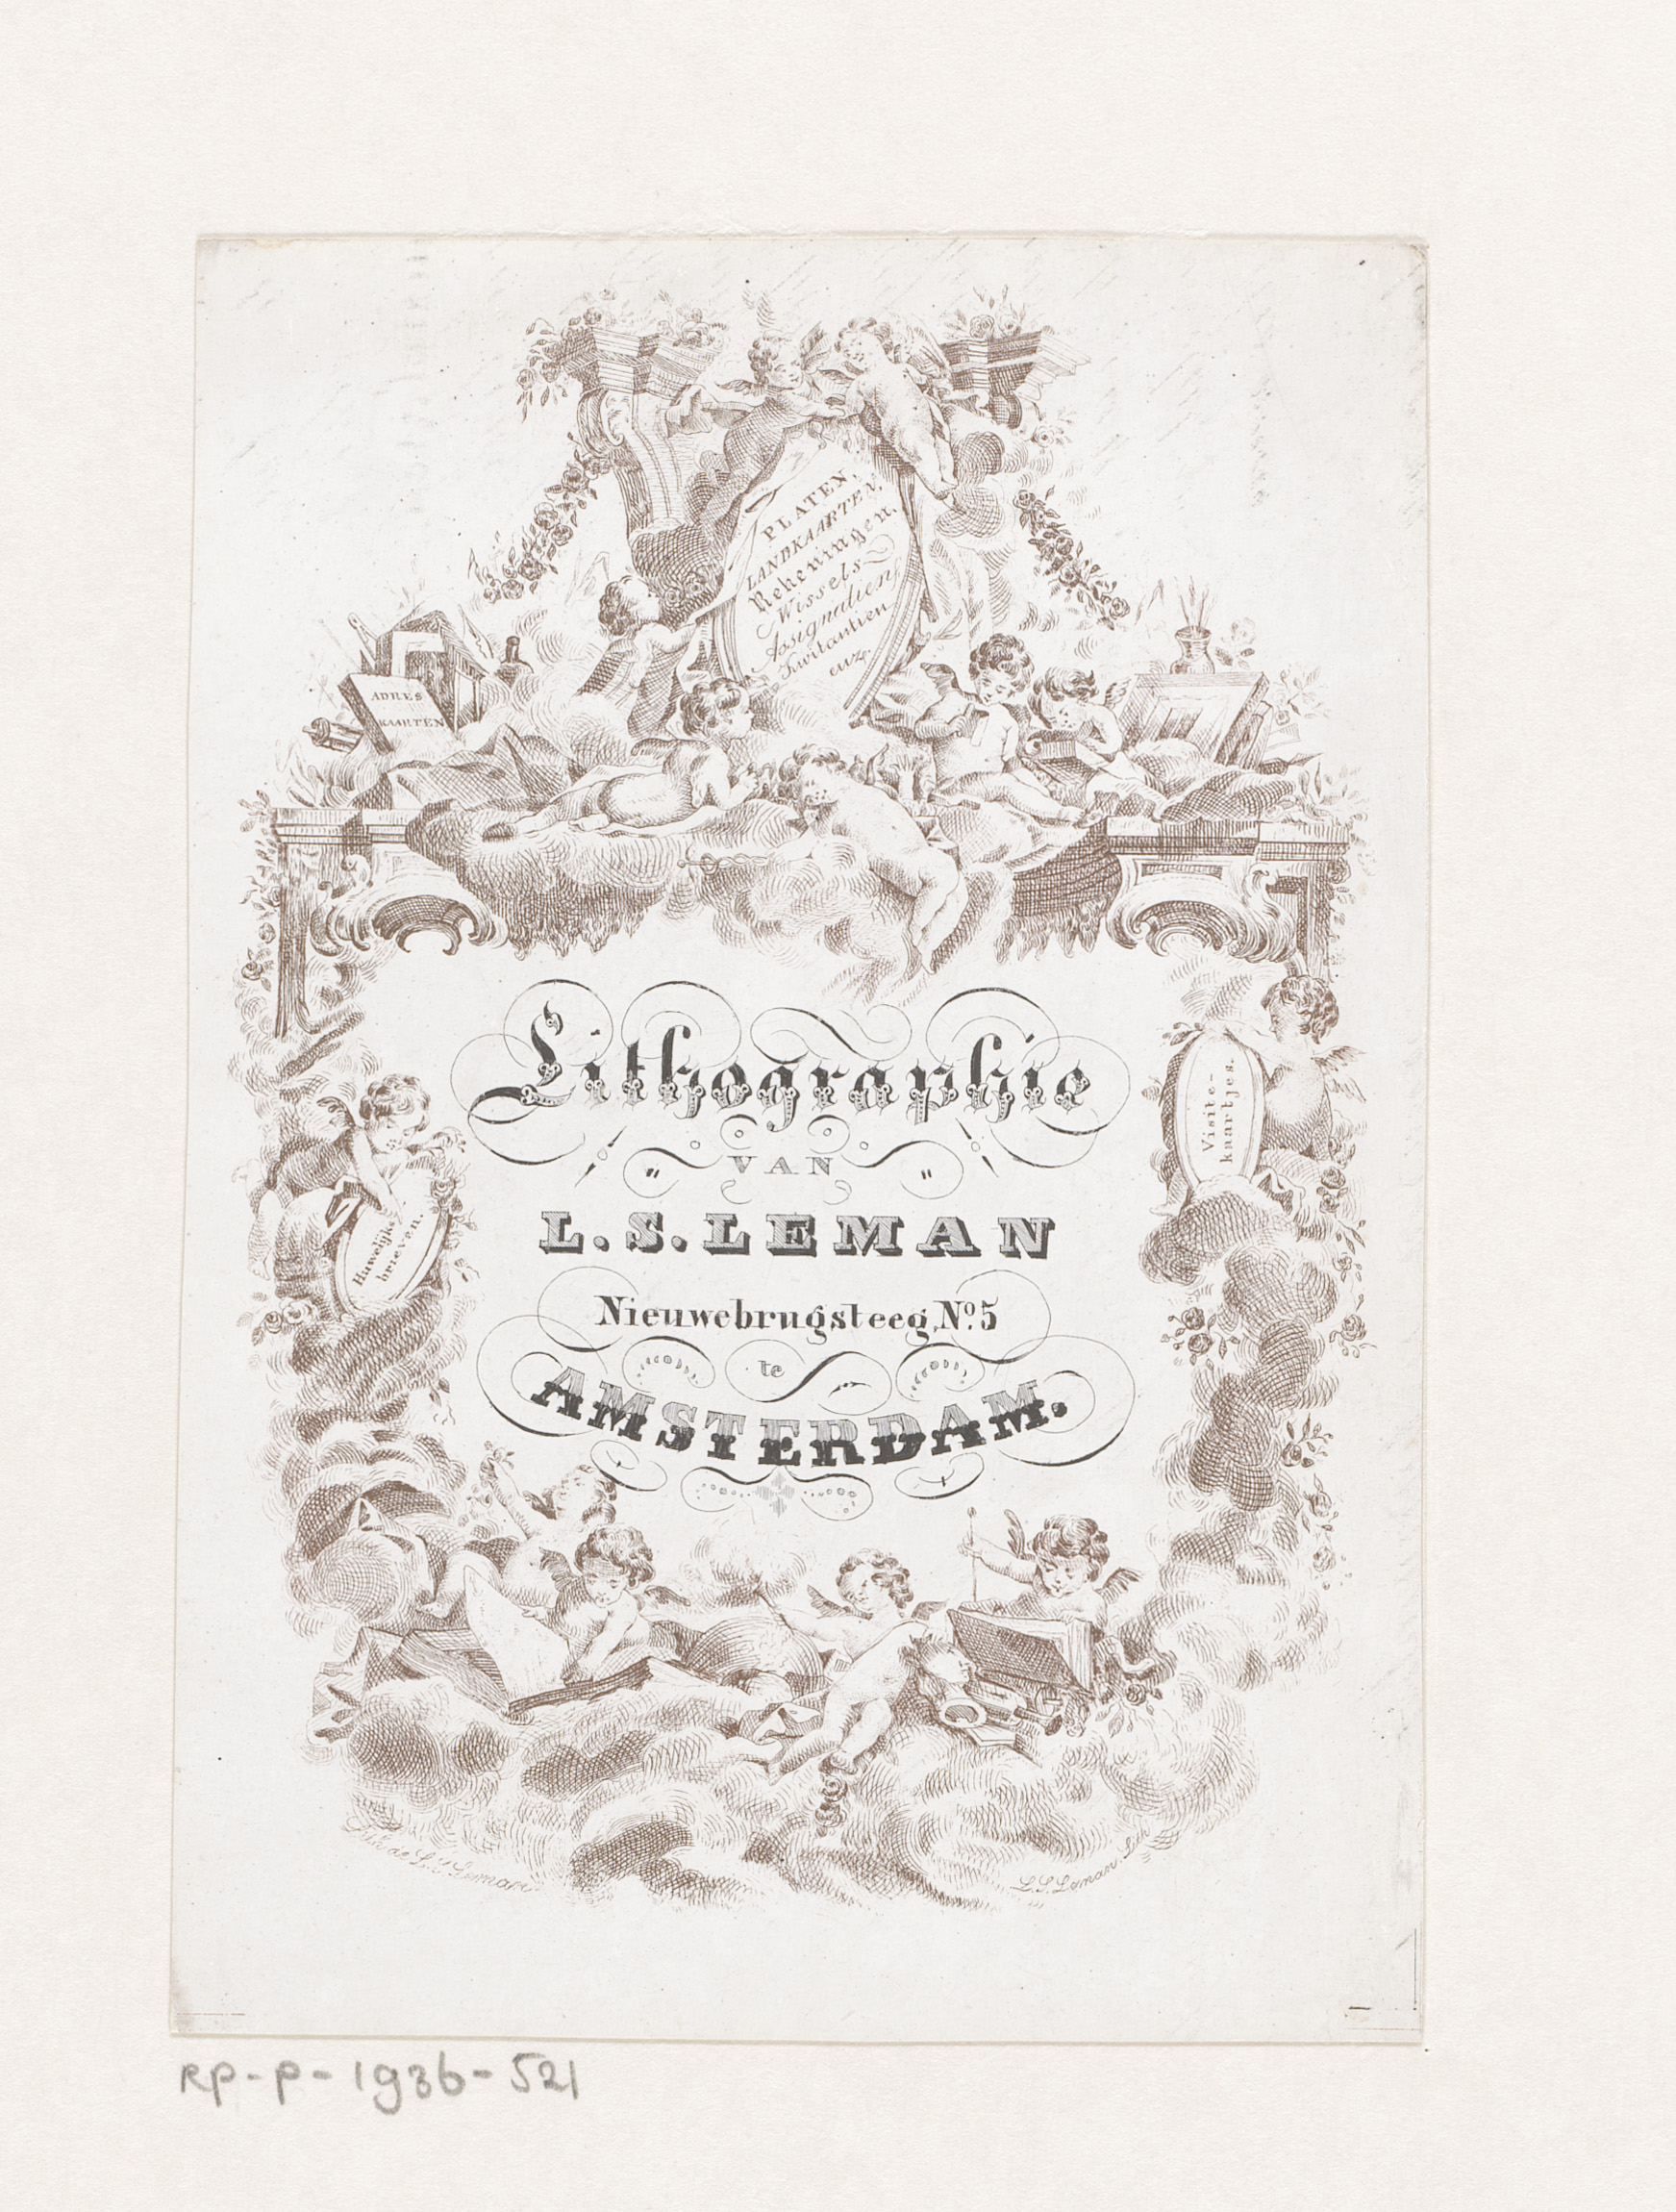 PLATEN,
LANDKAARTEN,
Rekeningen.
Wissels
Assignatien
Kwitantien
enz.
ADRES
KAARTEN
Lithographie
VAN
L. S. LEMAN
Huwelijks
brieven.
Visite-
kaartjes.
Nieuwebrugsteeg, No. 5
te
AMSTERDAM.
Lith. de L. S. Leman
L. S. Leman. Lith.
RP-P-1936-521